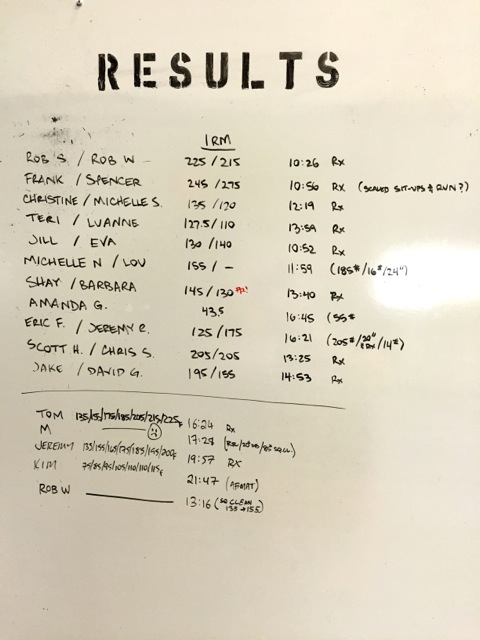 RESULTS
1RM
ROB S. / ROB W - 225 / 215 10:26 Rx
FRANK / SPENCER 245 / 275 10:50 Rx (SCALED SIT-UPS & RUN?)
CHRISTINE / MICHELLE S. 135 / 120 12:19 Rx
TERI / LUANNE 127.5 / 110 13:59 Rx
JILL / EVA 130 / 140 10:52 Rx
MICHELLE N / LOU 155 / - 11:59 (185# / 16# / 24")
SHAY / BARBARA 145 / 130 PR! 13:40 Rx
AMANDA G. 43.5 16:45 (55#
ERIC F. / JEREMY R. 125 / 175 16:21 (205# / 20" Rx / 14#)
SCOTT H. / CHRIS S. 205 / 205 13:25 Rx
JAKE / DAVID G. 195 / 155 14:53 Rx
TOM 135/155/175/185/205/215/225F 16:24 Rx
M 17:28
JEREMY 135/155/165/175/185/195/200F 19:57 RX
KIM 75/85/95/105/110/110/115F 21:47 (AFMAT)
ROB W 13:16 (SQ CLEAN 135 → 155)